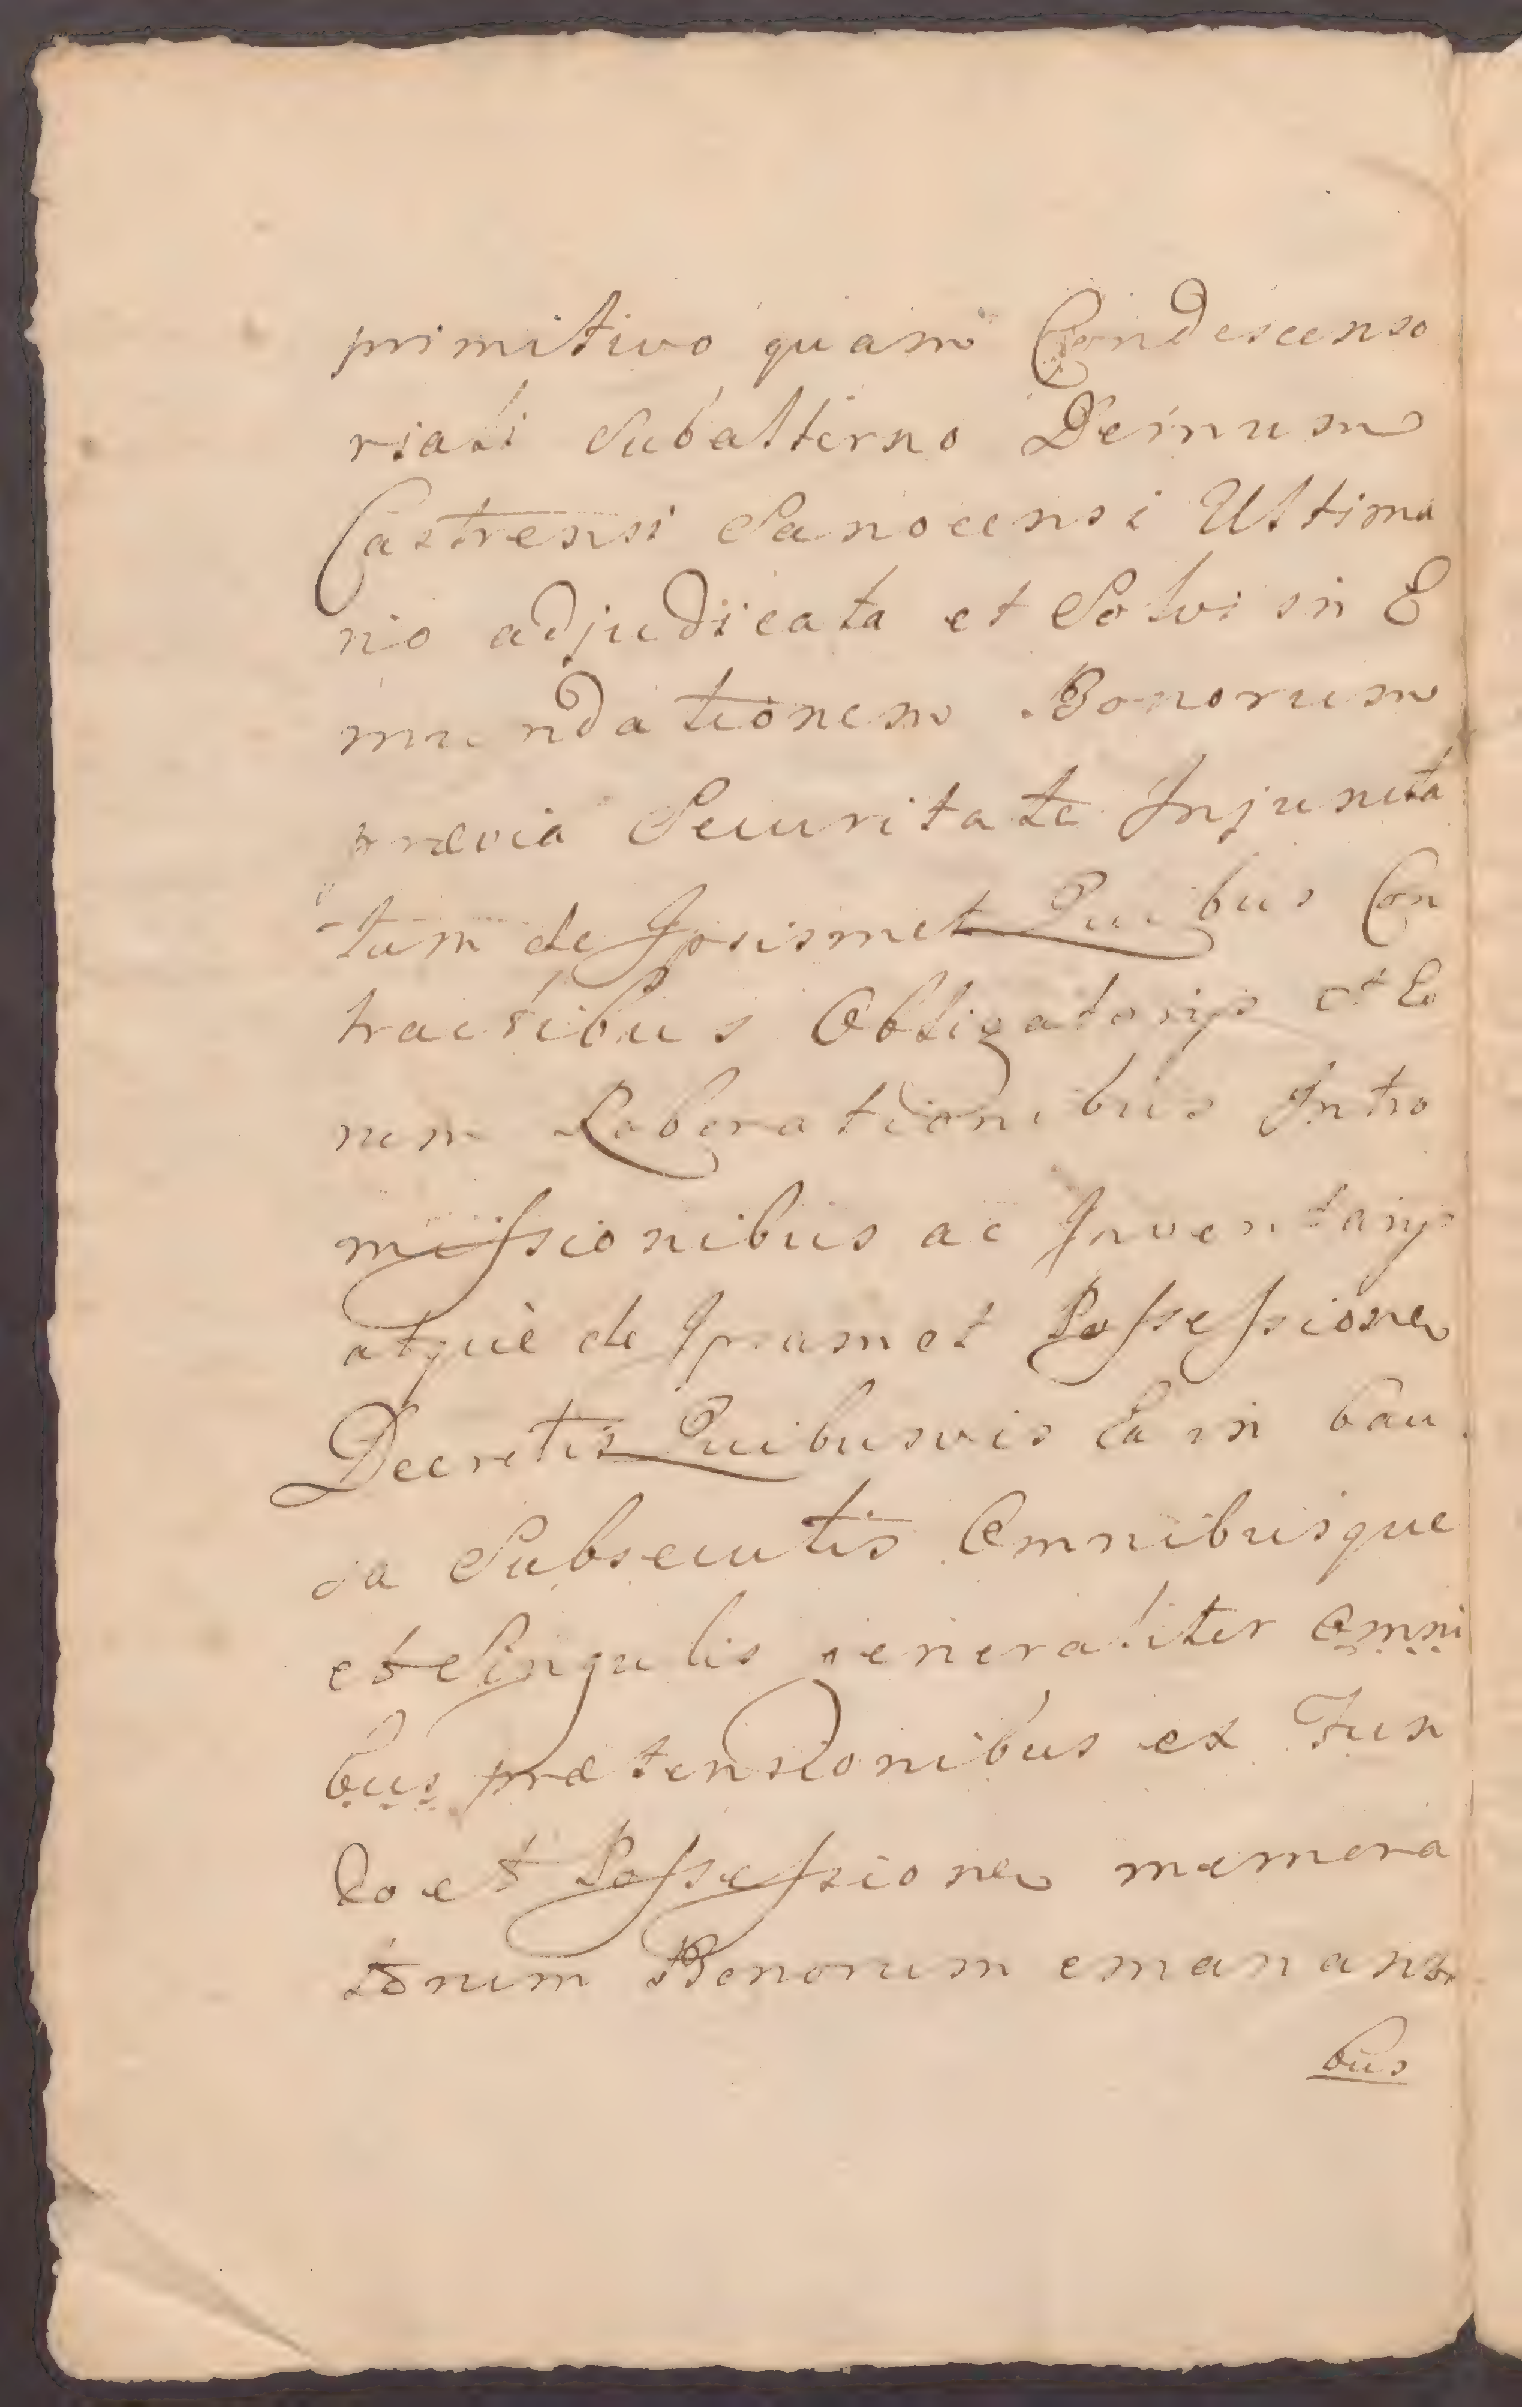 primitivo quam Condescenso
riali Subalterno Demum
Castrensi Sanocensi Ultima
rio adjudicata et Solvi in E
mundationem Bonorum
prævia Securitate Injuncta
tum de Ipsismet Quibus Con
tractibus Obligatorijs et Eo
rum Roborationibus Intro
missionibus ac Inventarijs
atquè de Ipsamet Possessione
Decretis Quibusvis Ea in Cau
sa Subsecutis Omnibusque
et Singulis generaliter omni
bus prætensionibus ex Fun
do et Possessione memora
torum Bonorum emananti
bus